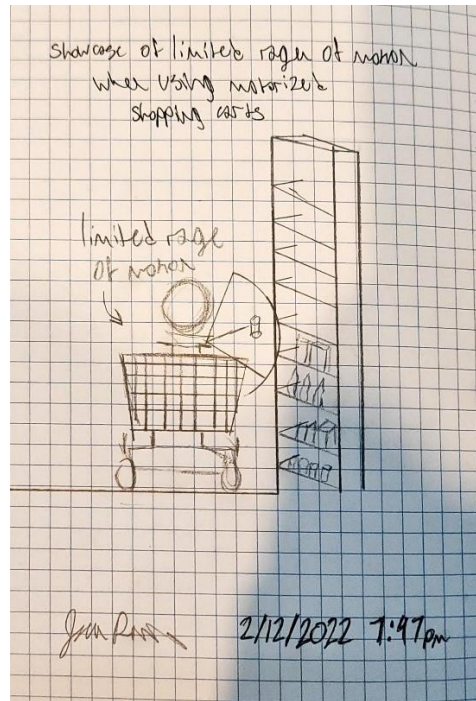 showcase of limited rage of motion
when using motorized
shopping carts
limited rage
of motion
2/12/2022 7:47pm